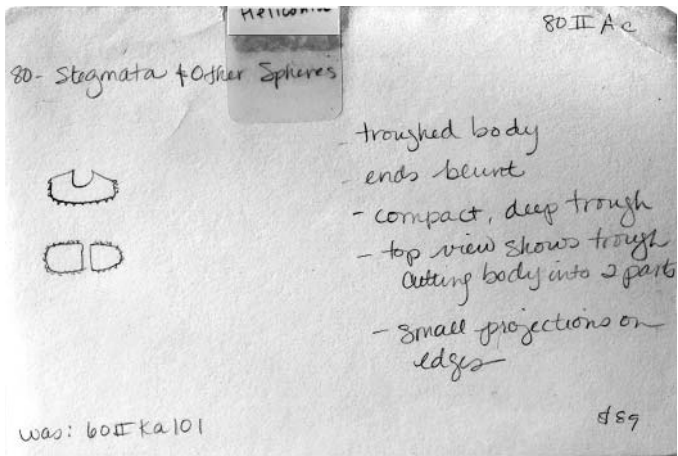 80 II Ac
80- Stegmata & Other Spheres
- troughed body
- ends blunt
- compact, deep trough
- top view shows trough
cutting body into 2 parts
- small projections on
edges
was: 60II Ka101